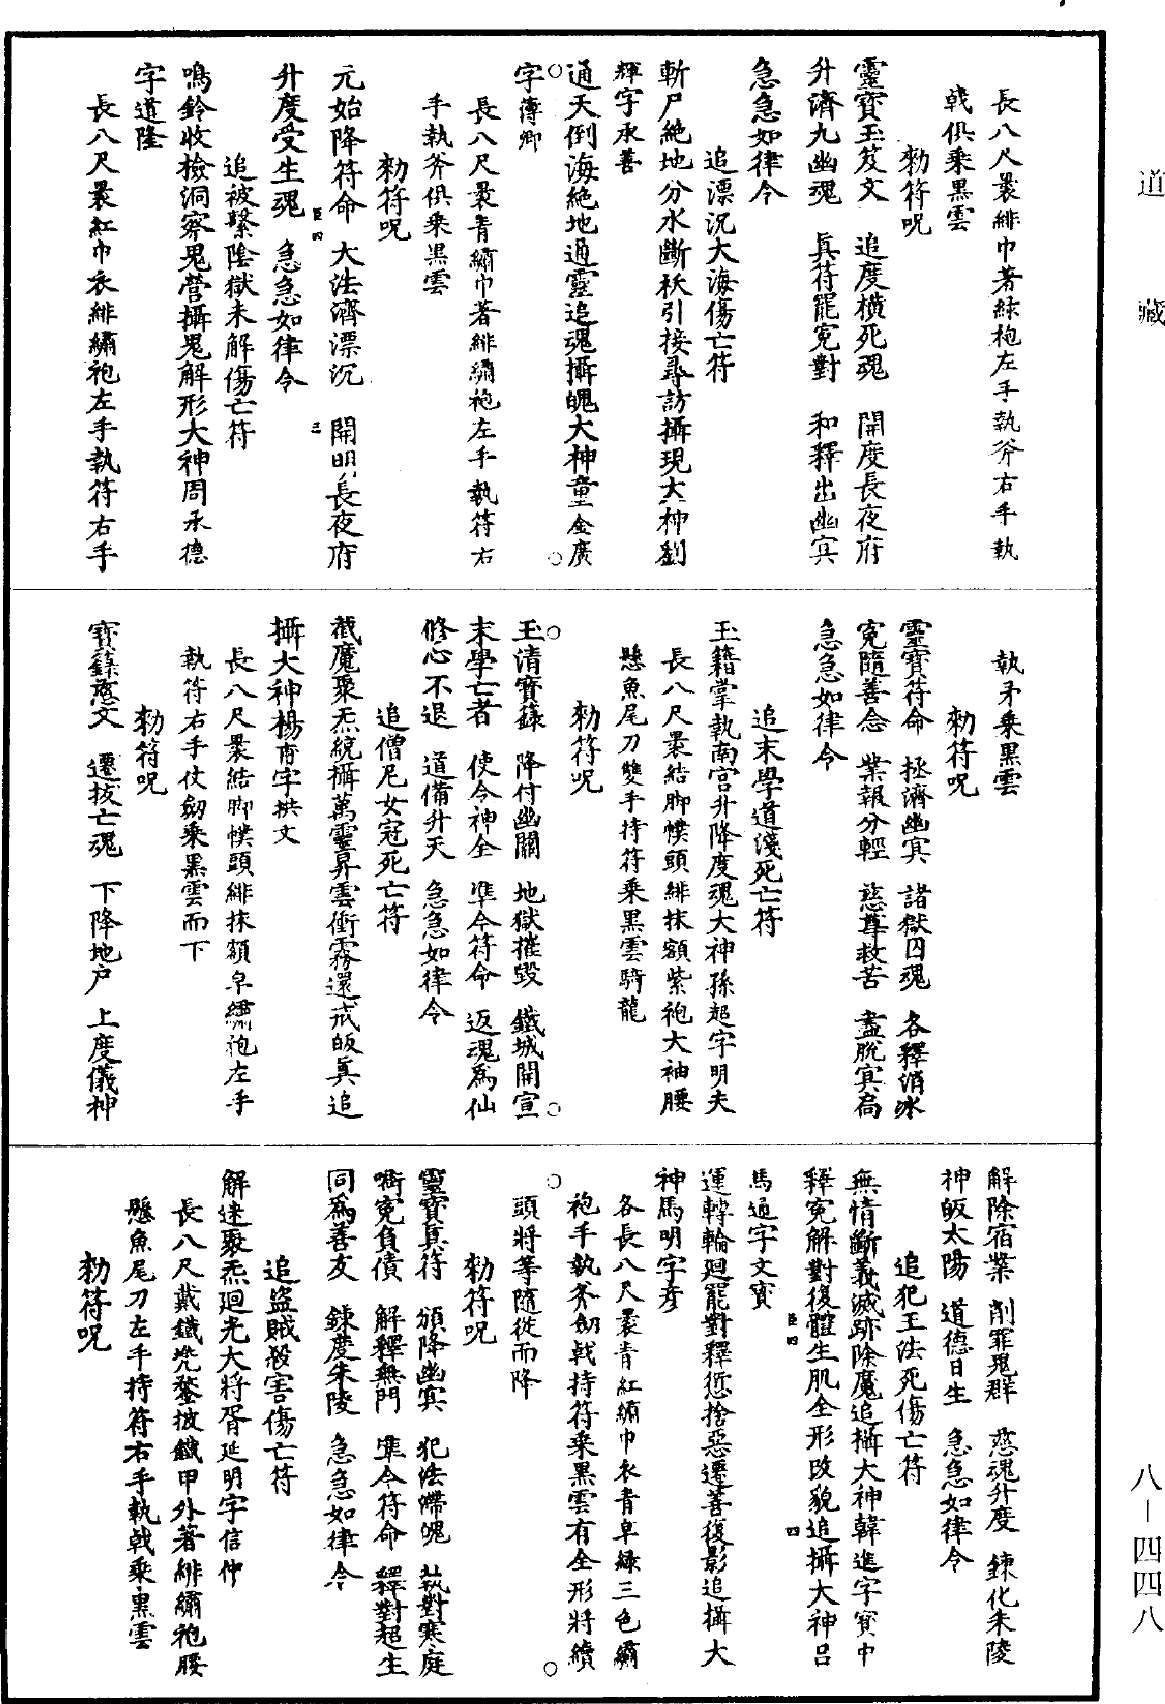 道藏
長八尺裹緋巾著緑袍左手執斧右手執
戟俱乘黑雲
勑符呪
靈寶玉笈文 追度橫死魂 開度長夜府
升濟九幽魂 眞符罷寃對 和釋出幽㝠
急急如律令
追漂沉大海傷亡符
斬尸絶地分水斷袄引接尋訪攝現大神劉
輝字承善
通天倒海絶地通靈追魂攝魄大神童金廣
字傳卿
長八尺裹青繡巾著緋繡袍左手執符右
手執斧俱乘黑雲
勑符呪
元始降符命 大法濟漂沉 開明長夜府
升度受生魂 急急如律令
追被繫陰獄未解傷亡符
鳴鈴收檢洞察鬼營攝鬼解形大神周承德
字道隆
長八尺裹紅巾衣緋繡袍左手執符右手
執矛乘黑雲
勑符呪
靈寶符命 拯濟幽㝠 諸獄囚魂 各釋消冰
寃隨善念 業報分輕 慈尊救苦 盡脫㝠扃
急急如律令
追末學道淺死亡符
玉籍掌執南宫升降度魂大神孫超字明夫
長八尺裹結脚幞頭緋抹額紫袍大袖腰
懸魚尾刀雙手持符乘黑雲騎龍
勑符呪
玉清寶籙 降付幽關 地獄摧毀 鐵城開宣
末學亡者 使令神全 準令符命 返魂爲仙
修心不退 道備升天 急急如律令
追僧尼女冠死亡符
截魔聚炁統攝萬靈昇雲衝霧還戒皈眞追
攝大神楊甯字拱文
長八尺裹結脚幞頭緋抹額皁繡袍左手
執符右手仗劒乘黑雲而下
勑符呪
寳籙慈文 遷拔亡魂 下降地户 上度儀神
解除宿業 削罪鬼群 慈魂升度 鍊化朱陵
神皈太陽 道德日生 急急如律令
追犯王法死傷亡符
無情斷義滅跡除魔追攝大神韓進字寳中
釋寃解對復體生肌全形改貌追攝大神吕
馬通字文寳
運轉輪廻罷對釋愆捨惡遷善復影追攝大
神馬明字彦
各長八尺裹青紅繡巾衣青皁緑三色繡
袍手執斧劒戟持符乘黑雲有全形將續
頭將等隨從而降
勑符呪
靈寶眞符 頒降幽㝠 犯法滯魄 執對寒庭
啣寃負債 解釋無門 準令符命 釋對超生
同爲善友 鍊度朱陵 急急如律令
追盜賊殺害傷亡符
解迷聚炁廻光大將胥延明字信仲
長八尺戴鐵兠鍪披鐵甲外著緋繡袍腰
懸魚尾刀左手持符右手執戟乘黑雲
勑符呪
八－四四八